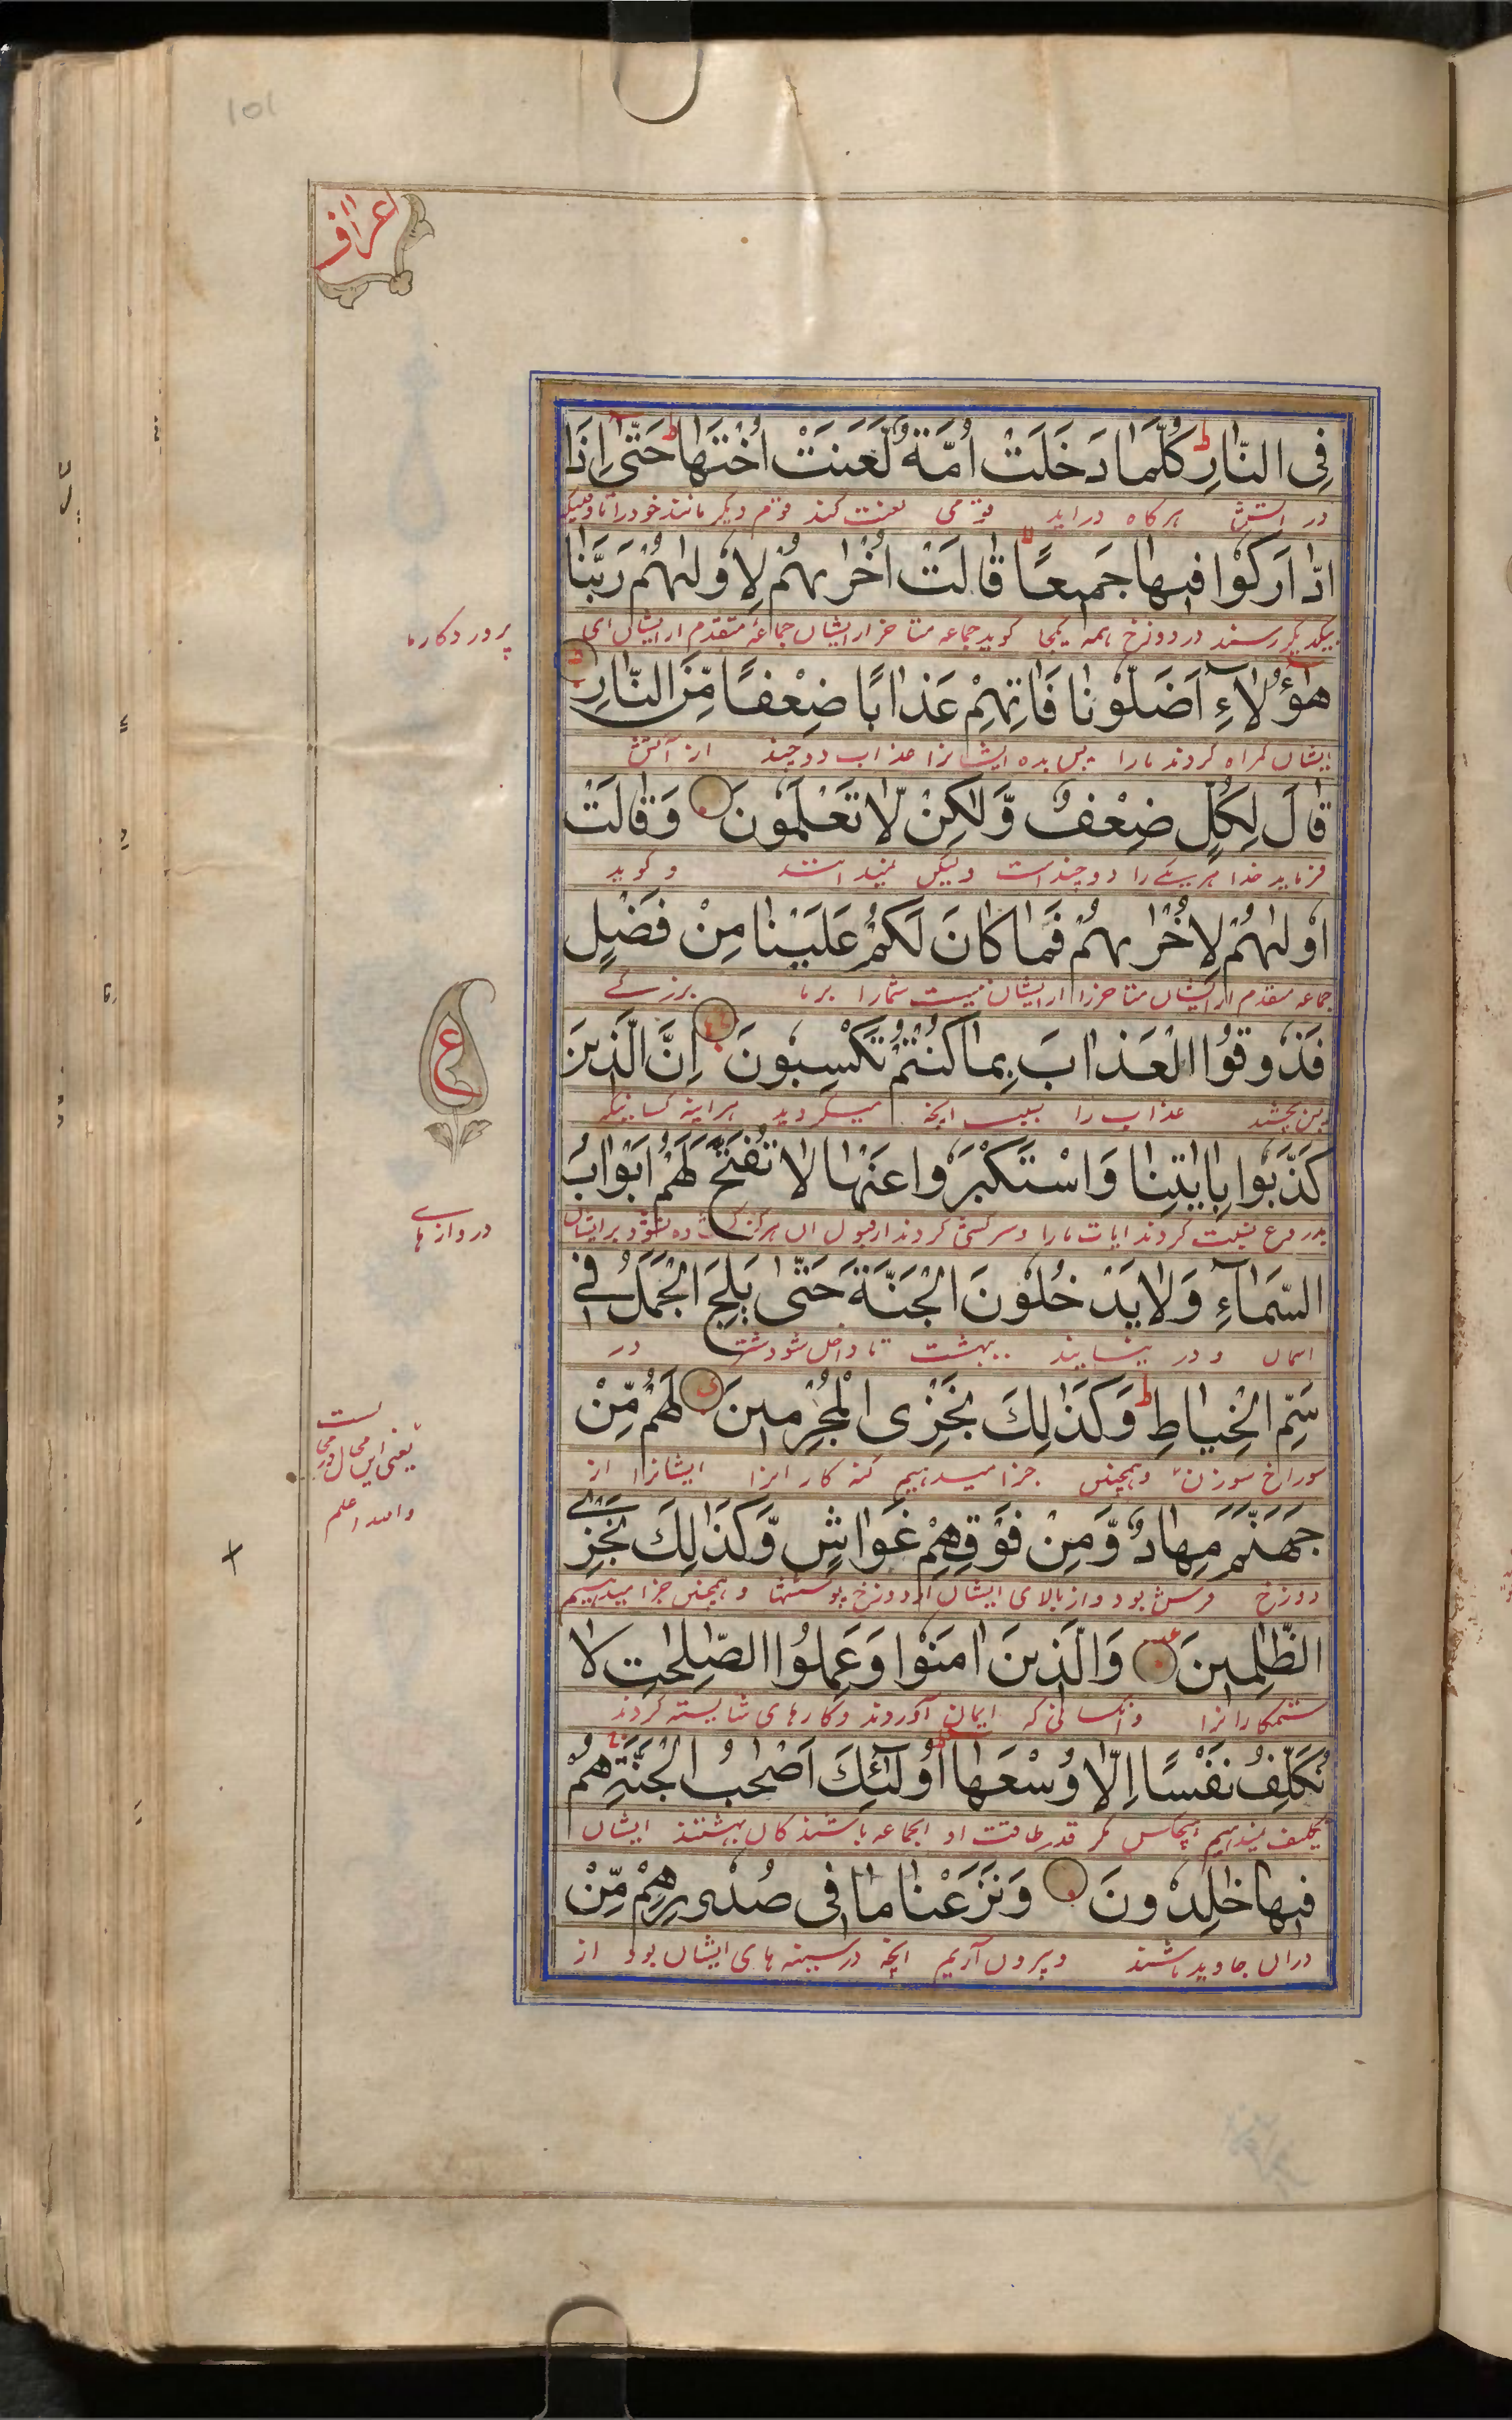 101
اعراف
فِی النَّارِ ط كُلَّمَا دَخَلَتْ اُمَّةٌ لَّعَنَتْ اُخْتَهَا ط حَتّٰی اِذَا
در آتش هرگاه دراید قومی لعنت کند قوم دیگر مانند خود را تا وقتیکه
ادَّارَكُوْا فِیهَا جَمِیعًا قَالَتْ اُخْرٰىهُمْ لِاُوْلٰىهُمْ رَبَّنَا
بیکدیگر رسند در دوزخ همه یکجا کوید جماعه متاخر از ایشان جماعۀ متقدم از ایشان ای
پروردکار ما
هٰۤؤُلَآءِ اَضَلُّوْنَا فَاٰتِهِمْ عَذَابًا ضِعْفًا مِّنَ النَّارِ ط
ایشان کمراه کردند مارا پس بده ایشانرا عذاب دوچند از آتش
قَالَ لِكُلٍّ ضِعْفٌ وَّلٰكِنْ لَّا تَعْلَمُونَ وَقَالَتْ
فرماید خدا هریکے را دوچنداست ولیکن نمیدانند و کوید
اُوْلٰىهُمْ لِاُخْرٰىهُمْ فَمَا كَانَ لَكُمْ عَلَیْنَا مِنْ فَضْلٍ
جماعه متقدم از ایشان متاخر را از ایشان نیست شمارا بر ما بزرکے
فَذُوقُوا الْعَذَابَ بِمَا كُنْتُمْ تَكْسِبُونَ اِنَّ الَّذِینَ
پس بچشید عذاب را بسبب انچه میکردید هراینه کسانیکه
ع
كَذَّبُوا بِاٰیٰتِنَا وَاسْتَكْبَرُوا عَنْهَا لَا تُفَتَّحُ لَهُمْ اَبْوَابُ
بدروغ نسبت کردند ایات مارا و سرکشی کردند از قبول ان هرگز کشاده نشود بر ایشان
دروازہاے
السَّمَآءِ وَلَا یَدْخُلُوْنَ الْجَنَّةَ حَتّٰی یَلِجَ الْجَمَلُ فِی
اسمان و در نیایند بهشت تا داخل شود شتر در
سَمِّ الْخِیَاطِ ط وَكَذٰلِكَ نَجْزِی الْمُجْرِمِینَ لَهُمْ مِّنْ
سوراخ سوزن وهمچنین جزا میدهیم کنه کارانرا ایشانرا از
یعنی این محال
والله اعلم
جَهَنَّمَ مِهَادٌ وَّمِنْ فَوْقِهِمْ غَوَاشٍ وَّكَذٰلِكَ نَجْزِی
دوزخ فرش بود و از بالای ایشان از دوزخ پوششها و همچنین جزا میدهیم
الظّٰلِمِینَ وَالَّذِینَ اٰمَنُوْا وَعَمِلُوا الصّٰلِحٰتِ لَا
ستمکارانرا و آنکسانی که ایمان آوردند وکارهای شایسته کردند
نُكَلِّفُ نَفْسًا اِلَّا وُسْعَهَا اُولٰٓئِكَ اَصْحٰبُ الْجَنَّةِ هُمْ
تکلیف نمیدهیم هیچکس مکر قدر طاقت او انجماعه باشندکان بهشتند ایشان
فِیهَا خٰلِدُونَ وَنَزَعْنَا مَا فِی صُدُورِهِمْ مِّنْ
دران جاوید باشند و بیرون آریم انچه در سینه های ایشان بود از